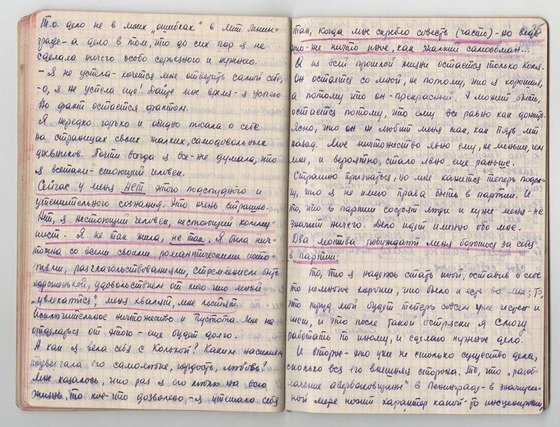 Т.о. дело не в моих "ошибках" в Лит. Ленин-
граде - а дело в том, что до сих пор я не
сделала ничего особо серьезного и нужного.
- Я не успела - хочется мне ответить самой себе,
- о, я не успела еще! Дайте мне время - я успею.
Но факт остается фактом.
Я нередко горько и обидно писала о себе
на страницах своих жалких, самодовольных
дневников. Почти всегда я все-же думала, что
я всетаки - стоющий человек.
Сейчас у меня нет этого подспудного и
утешительного сознания. Это очень страшно.
Нет, я нестоющий человек, нестоющий комму-
нист. Я не так жила, не так. Я была нич-
тожна со всеми своими романтическими исто-
риями, разглагольствованиями, стремлением быть
хорошенькой, удовольствием от того что мной
увлекаются, меня хвалят, мне льстят.
Исключительное ничтожество и пустота. Мне не
отделаться от этого - еще будет долго.
А как я вела себя с Колькой! Каким насилиям
подвергала его самолюбие, гордость, любовь!
Мне казалось, что раз я его люблю на всю
жизнь, то кое-что дозволено, - я утешала себя
так, когда мне скребло совесть (часто) - но ведь
это же ничто иное, как жалкий самообман...
Из всей прошлой жизни остается только Коля.
Он остается со мной, не потому, что я хорошая,
а потому что он - прекрасный. А может быть,
остается потому, что ему все равно как дожить
Ясно, что он не любит меня как, как пять лет
назад. Мое ничтожество явно ему, не меньше, чем
мне, и вероятно, стало явно еще раньше.
Страшно признаться, но мне кажется теперь поро-
й, что я не имею права быть в партии. И
то, что в партии состоят люди и хуже меня - не
значит ничего. Дело идет именно обо мне.
Два мотива побуждают меня бороться за себя
в партии.
То, что я надеюсь стать иной, оставив в себе
то немногое хорошее, что было и есть во мне; то,
что труд мой будет теперь совсем уже искрен и
чист, и что после такой встряски я смогу
работать по иному, и сделаю нужное дело.
И второе - это уже не столько существо дела,
сколько вся его внешняя сторона. То, что "разоб-
лачение авербаховщины" в Ленинграде - в значитель-
ной мере носит характер какой-то инсценировки